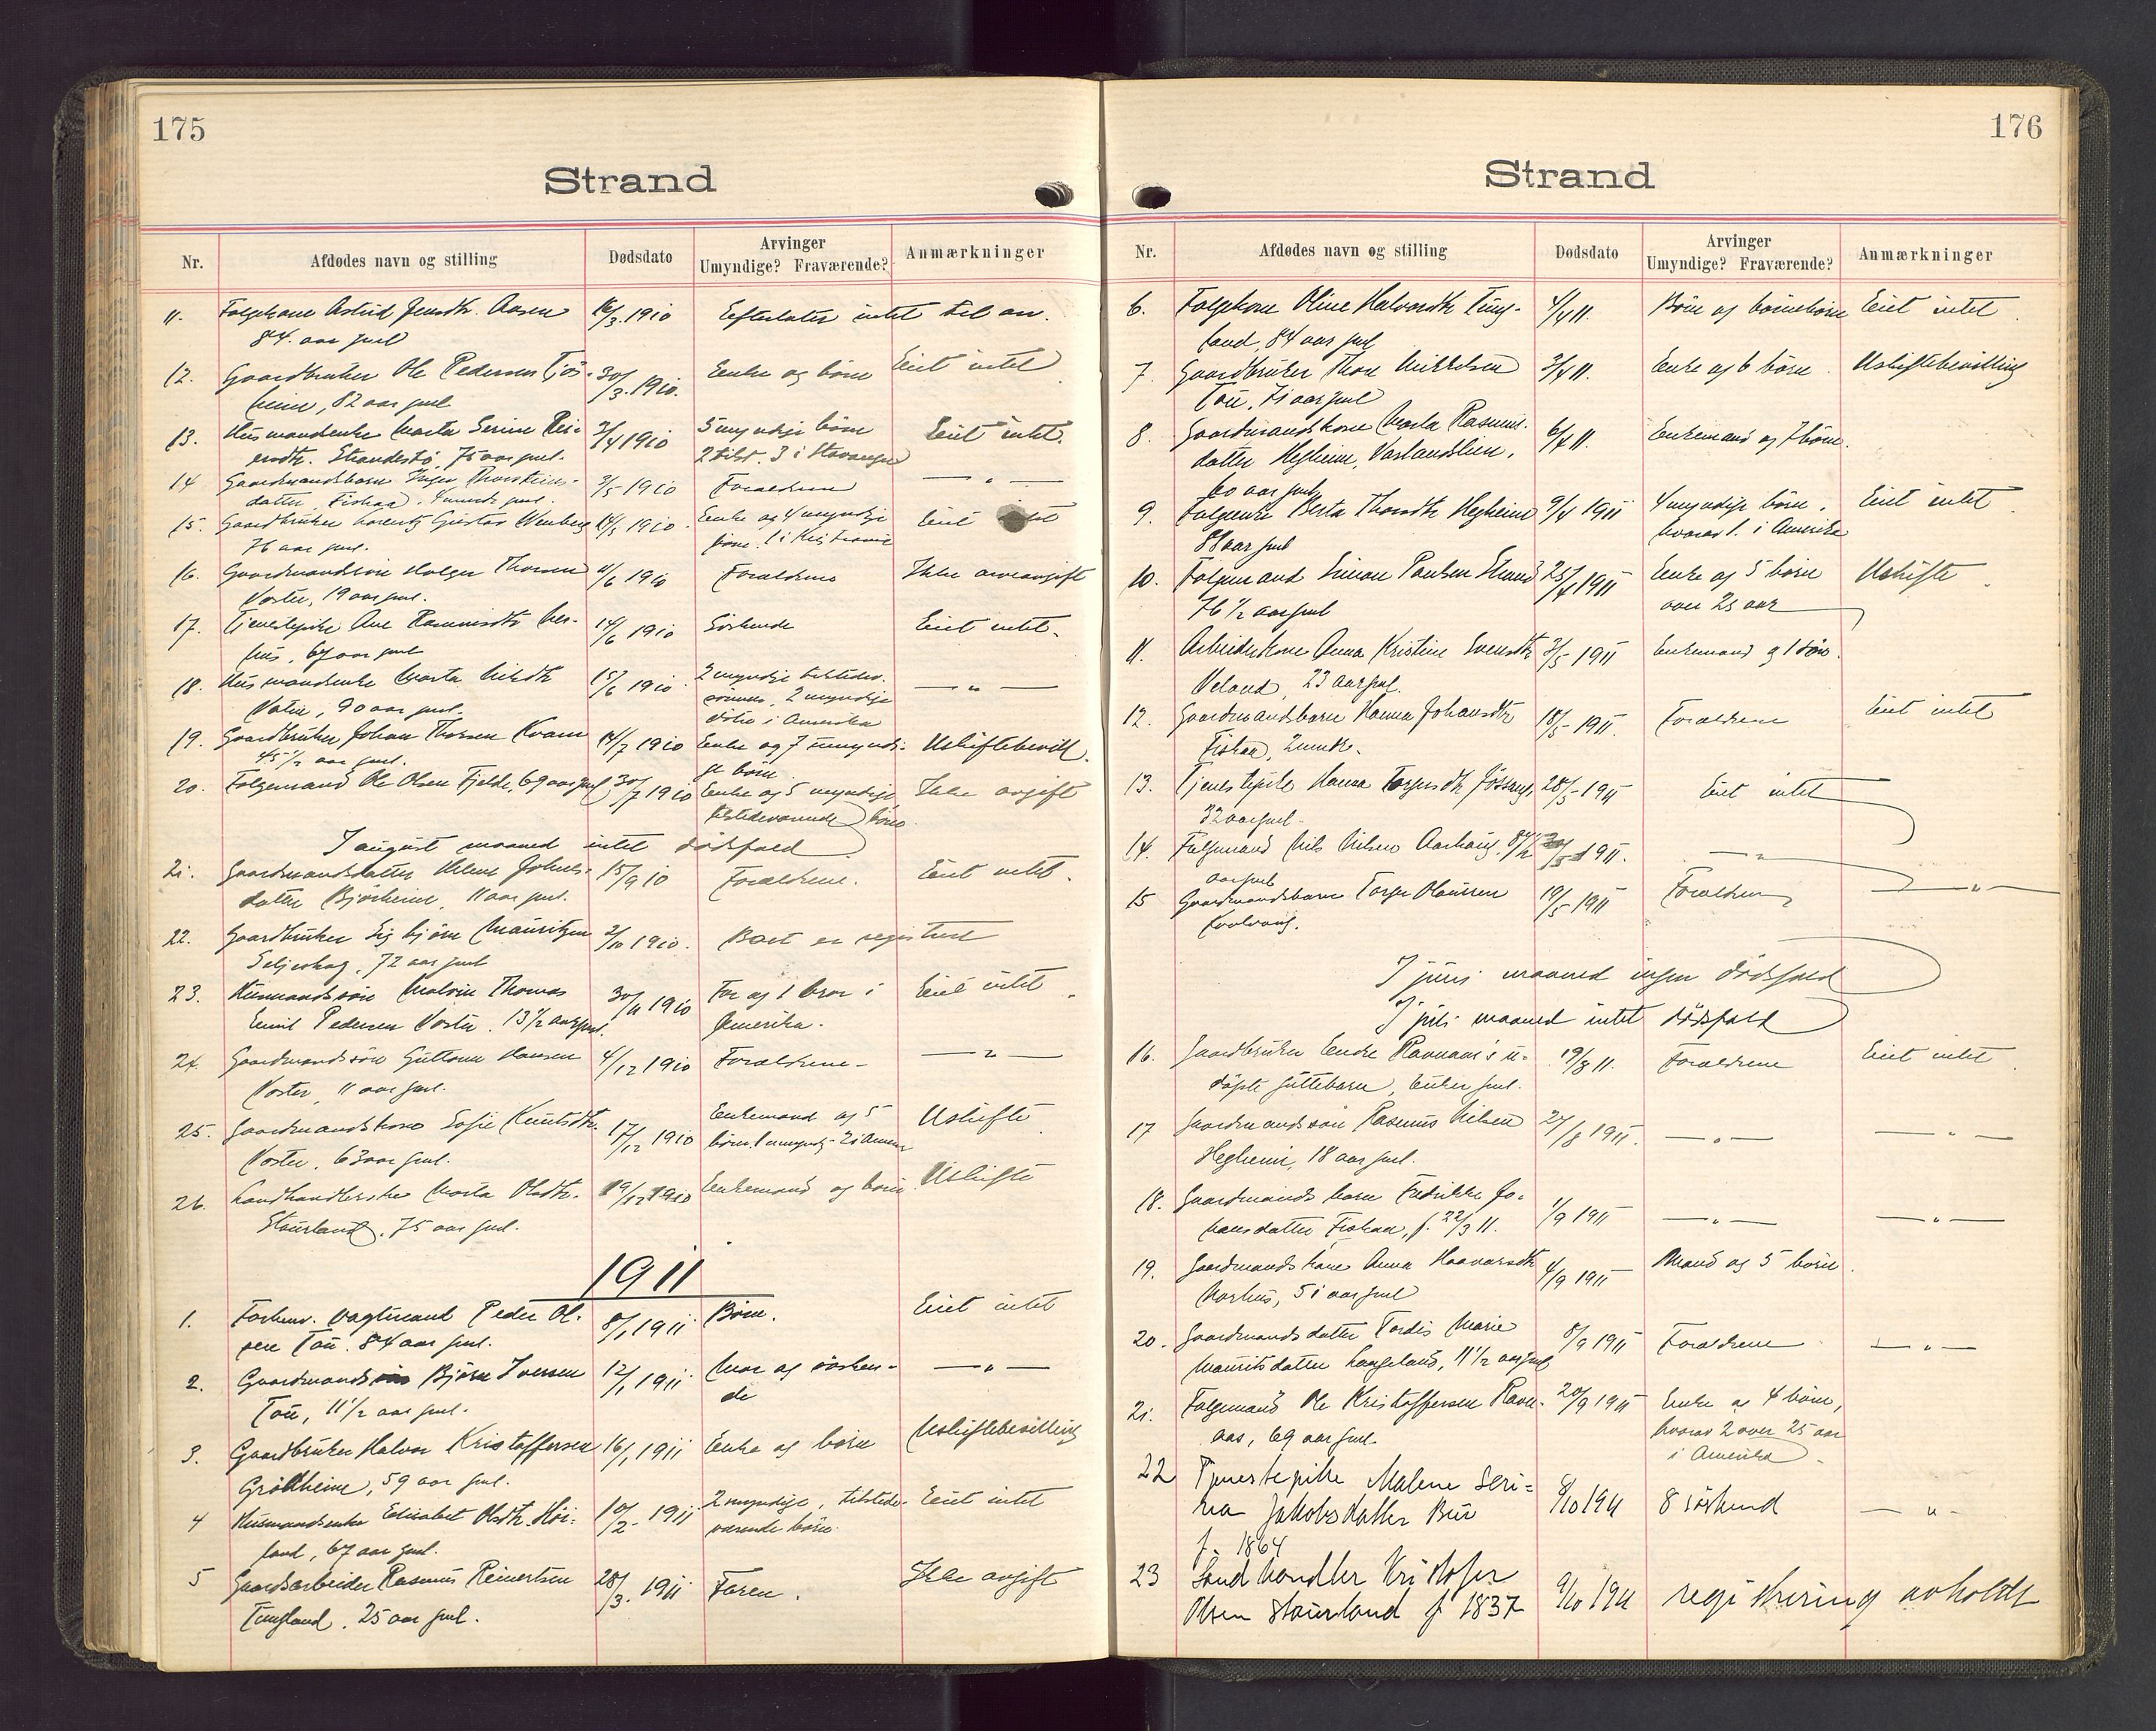 175
Strand
Nr. Afdødes navn og stilling Dødsdato Arvinger Umyndige? Fraværende? Anmærkninger
11. Folgekone Astrid Jensdtr. Aasen 16/3 1910 Efterlater intet til arv.
84 aar gml
12. Gaardbruker Ole Pedersen Tjøs- 30/3 1910. Enke og børn Eiet intet
heim, 82 aar gml
13. Husmandsenke Marta Serine Rei- 3/4 1910 5 myndige børn Eiet intet.
ersdtr. Strandestø, 75 aar gml. 2 tilst. 3 i Stavanger
14 Gaardmandsbarn Inger Thorsteins- 3/5 1910 Forældrene — " —
datter Fiskaa. 4 mndr gml.
15. Gaardbruker Lorentz Gustav Wenberg 14/5 1910. Enke og 4 myndige Eiet intet
76 aar gml. børn. 1 i Kristiania
16. Gaardmandssøn Holger Thorsen 11/6 1910 Forældrene Ikke arveavgift
Voster, 19 aar gml.
17. Tjenestepike Ane Rasmusdtr 14/6 1910 Søskende Eiet intet.
hus, 67 aar gml
18. Husmandsenke Marta Nilsdtr 15/6 1910 2 myndige tilstedev. — " —
Vatne, 90 aar gml. sønner, 2 myndige
døtre i Amerika
19. Gaardbruker Johan Thorsen Kvam 14/7 1910 Enke og 7 umyndi- Uskiftebevill.
45 1/2 aar gml. ge børn.
20. Folgemand Ole Olsen Fjelde, 69 aar gml 30/7 1910 Enke og 5 myndige Ikke avgift
tilstedeværende børn.
I august maaned intet dødsfald
21. Gaardmandsdatter Helene Johns- 15/9 10 Forældrene. Eiet intet.
datter Bjørheim, 11 aar gml.
22. Gaardbruker Sigbjørn Mauritzen 2/10 1910. Boet er registrert
Seljeskog, 72 aar gml
23. Husmandssøn Malvin Thomas 30/11 1910 Far og 1 bror i Eiet intet.
Emil Pedersen Voster. 13 1/2 aar gml. Amerika.
24. Gaardmandssøn Guttorm Hansen 4/12 1910 Forældrene — " —
Voster, 11 aar gml.
25. Gaardmandskone Sofie Knutsdtr. 17/12 1910 Enkemand og 5 Uskifte
Voster, 63 aar gml. børn. 1 umyndg. 2 i Amer
26. Landhandlerske Marta Olsdtr. 19/12 1910 Enkemand og børn Uskifte
Staurland, 75 aar gml.
1911
1. Forhenv. vagtmand Peder Ol- 8/1 1911 Børn. Eiet intet
sen Tau. 84 aar gml.
2. Gaardmands Bjørn Iversen 12/1 1911 Mor og søsken- — " —
Tau, 11 1/2 aar gml. de
3. Gaardbruker Halvor Kristoffersen 16/1 1911 Enke og børn Uskiftebevilling
Grødheim, 59 aar gml.
4 Husmandsenke Elisabet Olsdtr. Høi- 10/2 1911 2 myndige, tilstede- Eiet intet
land, 67 aar gml. værende børn.
5 Gaardsarbeider Rasmus Reinertsen 28/3 1911 Faren. Ikke avgift
Tungland. 25 aar gml.
176
Strand
Nr. Afdødes navn og stilling Dødsdato Arvinger Umyndige? Fraværende? Anmærkninger
6. Folgekone Oline Halvorsdtr Tung- 4/4 11. Børn og børnebørn Eiet intet
land, 84 aar gml
7. Gaardbruker Thore Mikkelsen 3/4 11. Enke og 6 børn. Uskiftebevilling
Tau, 71 aar gml
8. Gaardmandskone Marta Rasmus- 6/4 11. Enkemand og 7 børn.
datter Hegheim, Varlandslien,
60 aar gml
9. Folgeenke Berta Thorsdtr Hegheim 9/4 1911 4 myndige børn, Eiet intet
88 aar gml hvorav 1 i Amerika
10. Folgemand Simon Paulsen Strand 25/4 1911 Enke og 5 børn Uskifte
76 1/2 aar gml over 25 aar
11. Arbeiderkone Anna Kristine Svensdtr 3/5 1911 Enkemand og 1 søn.
Veland, 23 aar gml.
12. Gaardmandsbarn Hanna Johansdtr 18/5 1911. Forældrene Eiet intet
Fiskaa, 2 mndr.
13. Tjenestepike Hanna Torgersdtr Jøssang, 28/5 1911 Eiet intet
32 aar gml.
14. Folgemand Nils Nilsen Aarhaug, 84 1/2 /5 1911. — " —
aar gml
15 Gaardmandsbarn Torger Olaussen 19/5 1911 Forældrene — " —
I juni maaned ingen dødsfald
I juli maaned intet dødsfald
16. Gaardbruker Endre Ravnaas's u- 19/8 11. Forældrene Eiet intet
døpte guttebarn, 1 uker gml.
17 Gaardmandssøn Rasmus Nilsen 27/8 1911. — " — — " —
Hegheim, 18 aar gml.
18. Gaardmands barn Fredrikke Jo- 1/9 1911 — " — — " —
hansdatter Fiskaa, f. 22/3 11.
19. Gaardmandskone Anna Haavarsdtr 4/9 1911 Mand og 5 børn.
Norhus, 51 aar gml
20. Gaardmandsdatter Tordis Marie 8/9 1911 Forældrene — " —
Mauritsdatter Langeland, 11 1/2 aar gml
21. Folgemand Ole Kristoffersen Ravn- 20/9 1911 Enke og 4 børn,
aas, 69 aar gml. hvorav 2 over 25 aar
i Amerika
22 Tjenestepike Malene Seri- 8/10 1911 8 søskend — " —
na Jakobsdatter Bu
f. 1864
23 Landhandler Kristofer 9/10 1911 registrering avholdt
Olsen Staurland f 1837